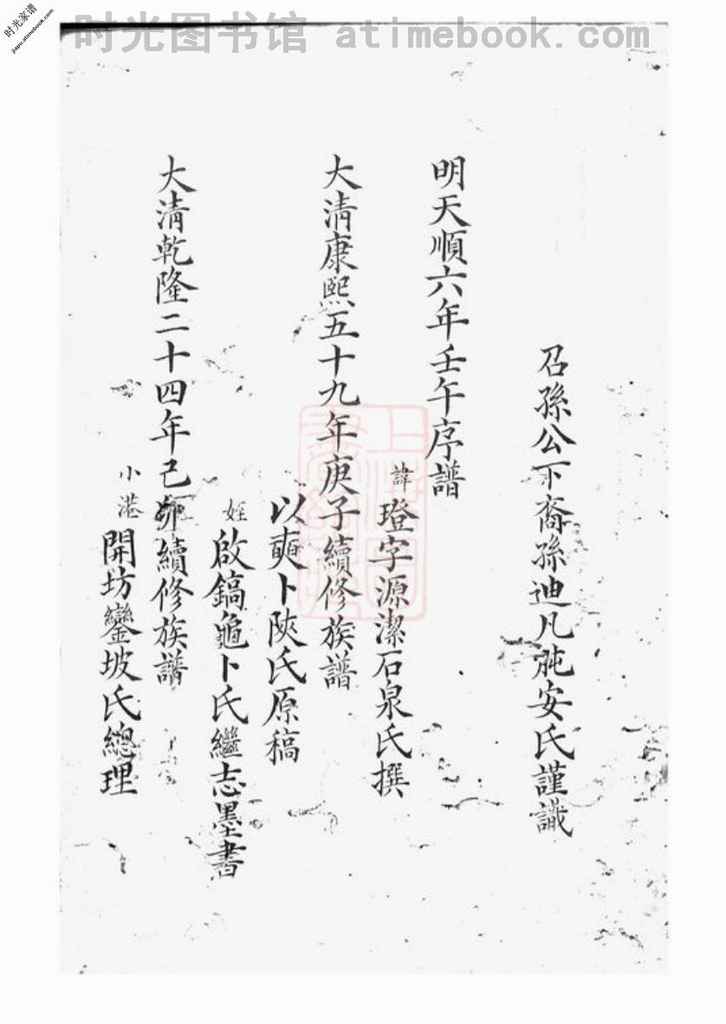 时光图书馆 atimebook.com
时光家谱
召孫公下裔孫迪凡肫安氏謹識
明天順六年壬午序譜
諱璒字源潔石泉氏撰
大清康熙五十九年庚子續修族譜
以奭卜陝氏原稿
姪啟鎬龜卜氏繼志墨書
大清乾隆二十四年己卯續修族譜
小港開坊鑾坡氏總理